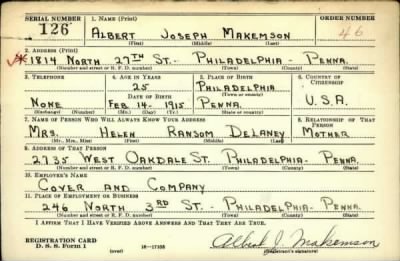 SERIAL NUMBER 1. NAME (Print) ORDER NUMBER
126 ALBERT JOSEPH MAKEMSON 46
(First) (Middle) (Last)
2. ADDRESS (Print)
1814 NORTH 27TH ST. PHILADELPHIA - PENNA.
(Number and street or R. F. D. number) (Town) (County) (State)
3. TELEPHONE 4. AGE IN YEARS 5. PLACE OF BIRTH 6. COUNTRY OF CITIZENSHIP
25 PHILADELPHIA
DATE OF BIRTH (Town or county)
NONE FEB 14- 1915 PENNA. U.S.A.
(Exchange) (Number) (Mo.) (Day) (Yr.) (State or country)
7. NAME OF PERSON WHO WILL ALWAYS KNOW YOUR ADDRESS 8. RELATIONSHIP OF THAT PERSON
MRS. HELEN RANSOM DELANEY MOTHER
(Mr., Mrs., Miss) (First) (Middle) (Last)
9. ADDRESS OF THAT PERSON
2735 WEST OAKDALE ST. PHILADELPHIA- PENNA.
(Number and street or R. F. D. number) (Town) (County) (State)
10. EMPLOYER'S NAME
COVER AND COMPANY
11. PLACE OF EMPLOYMENT OR BUSINESS
246 NORTH 3RD ST- PHILADELPHIA- PENNA.
(Number and street or R. F. D. number) (Town) (County) (State)
I AFFIRM THAT I HAVE VERIFIED ABOVE ANSWERS AND THAT THEY ARE TRUE.
REGISTRATION CARD
D. S. S. Form 1 (over) 16-17105 Albert J. Makemson
(Registrant's signature)